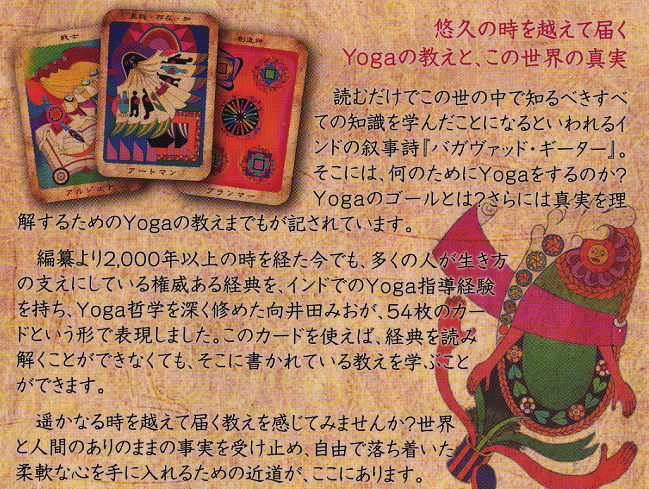 戦士
真我・存在・知
創造神
アルジュナ
アートマン
ブランマー
悠久の時を越えて届く
Yogaの教えと、この世界の真実
読むだけでこの世の中で知るべきすべ
ての知識を学んだことになるといわれるイ
ンドの叙事詩『バガヴァッド・ギーター』。
そこには、何のためにYogaをするのか?
Yogaのゴールとは?さらには真実を理
解するためのYogaの教えまでもが記されています。
編纂より2,000年以上の時を経た今でも、多くの人が生き方
の支えにしている権威ある経典を、インドでのYoga指導経験
を持ち、Yoga哲学を深く修めた向井田みおが、54枚のカー
ドという形で表現しました。このカードを使えば、経典を読み
解くことができなくても、そこに書かれている教えを学ぶこと
ができます。
遥かなる時を越えて届く教えを感じてみませんか?世界
と人間のありのままの事実を受け止め、自由で落ち着いた
柔軟な心を手に入れるための近道が、ここにあります。